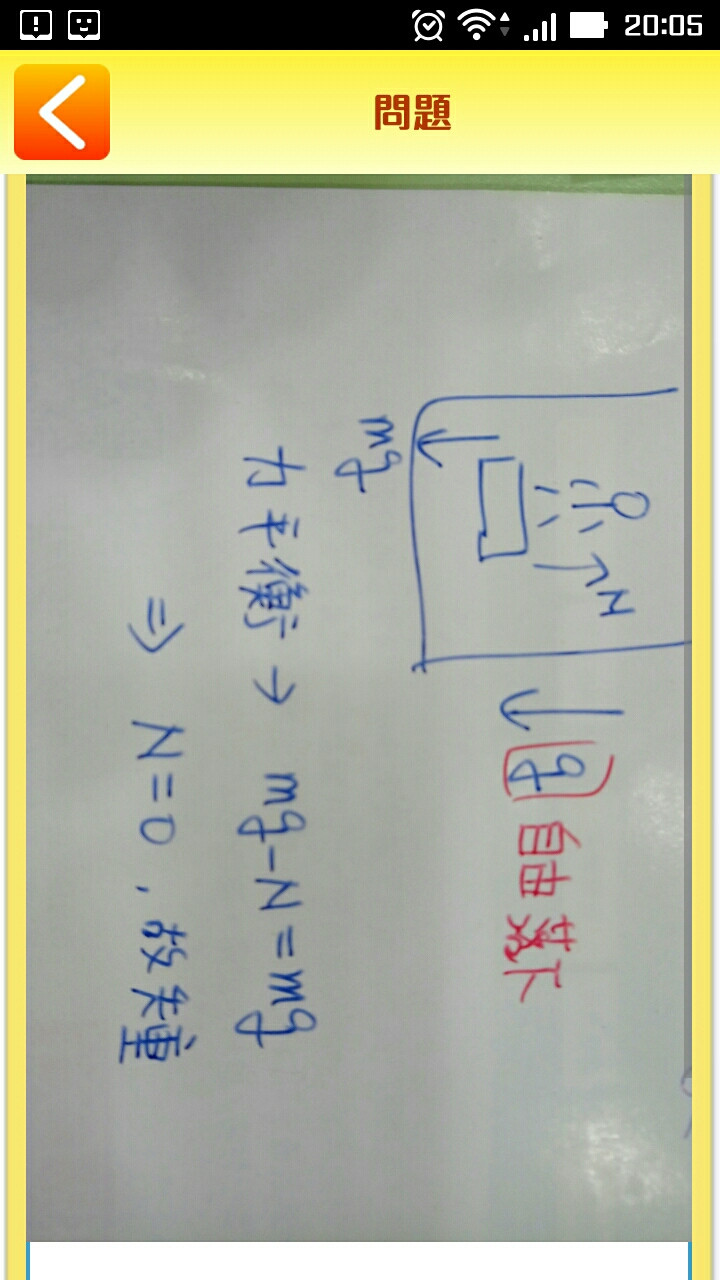 20:05
問題
N
mg
g 自由落下
力平衡 → mg-N=mg
⇒ N=0，故失重